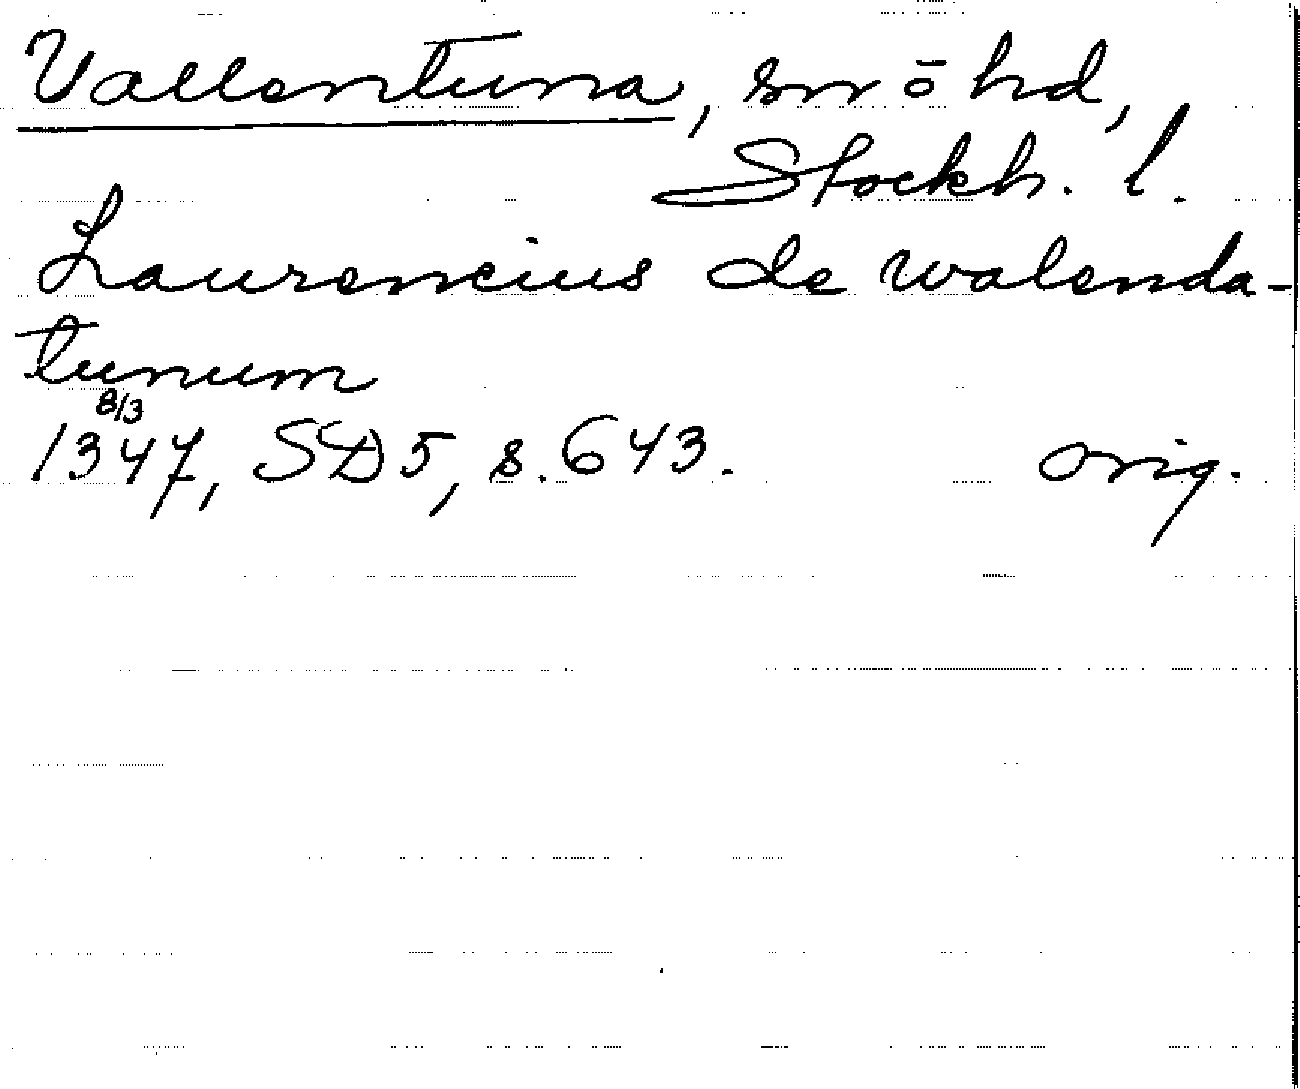 Vallentuna, sn o hd,
Stockh. l.
Laurencius de walenda-
tunum
8/3
1347, SD 5, s. 643. orig.